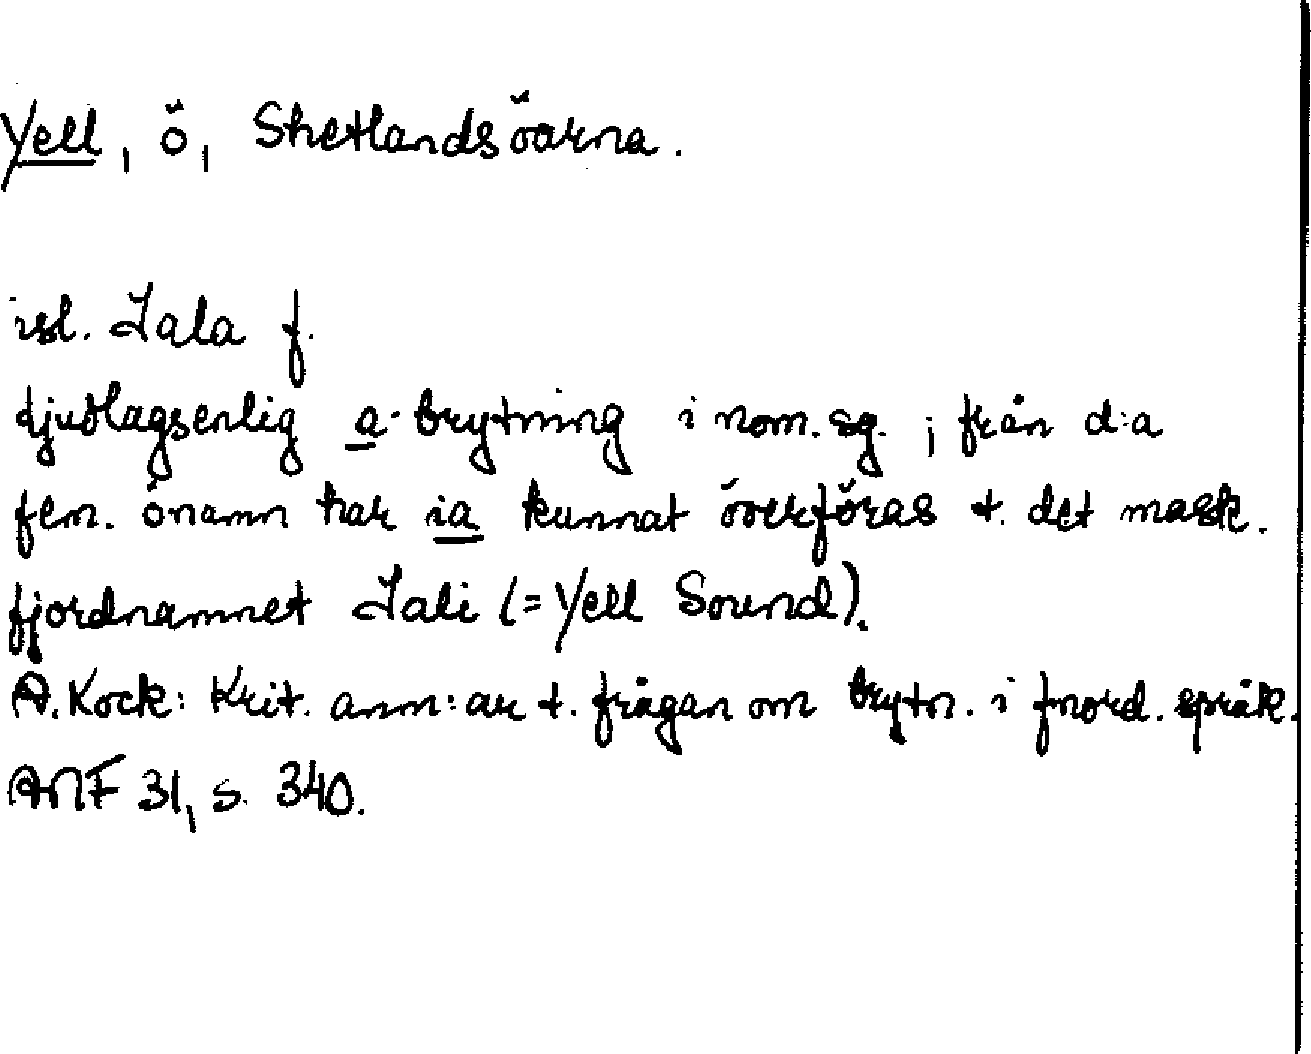 Yell, ö, Shetlandsöarna.
isl. Jala f.
ljudlagsenlig a-brytning i nom. sg. ; från d:a
fem. önamn har ia kunnat överföras t. det mask.
fjordnamnet Jali (= Yell Sound).
A. Kock: Krit. anm:ar t. frågan om brytn. i fnord. språk.
ANF 31, s. 340.